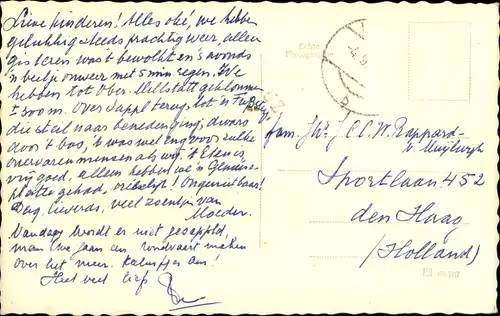 Lieve kinderen! Alles oké, we hebben
gelukkig steeds prachtig weer, alleen
gisteren was 't bewolkt en 's avonds
'n beetje onweer met 5 min regen. We
hebben tot Ober Millstatt geklommen
± 300 m. Over Sappl terug tot 'n
die steil naar beneden ging, dwars
door 't bos, 't was wel eng voor zulke
onervaren mensen als wij. 't Eten is
vrij goed, alleen hebben we 'n Gemüse-
platte gehad, ! Ongenietbaar!
Dag, lieverds, veel zoentjes van
Moeder.
Vandaag wordt er niet gesappeld,
maar we gaan 'n rondvaart maken
over het meer. Kalmpjes aan!
Heel veel liefs
Echte
Photographie
4.9
fam. J. C. W. Rappard-
v Muijlwijk
Sportlaan 452
den Haag
(Holland)